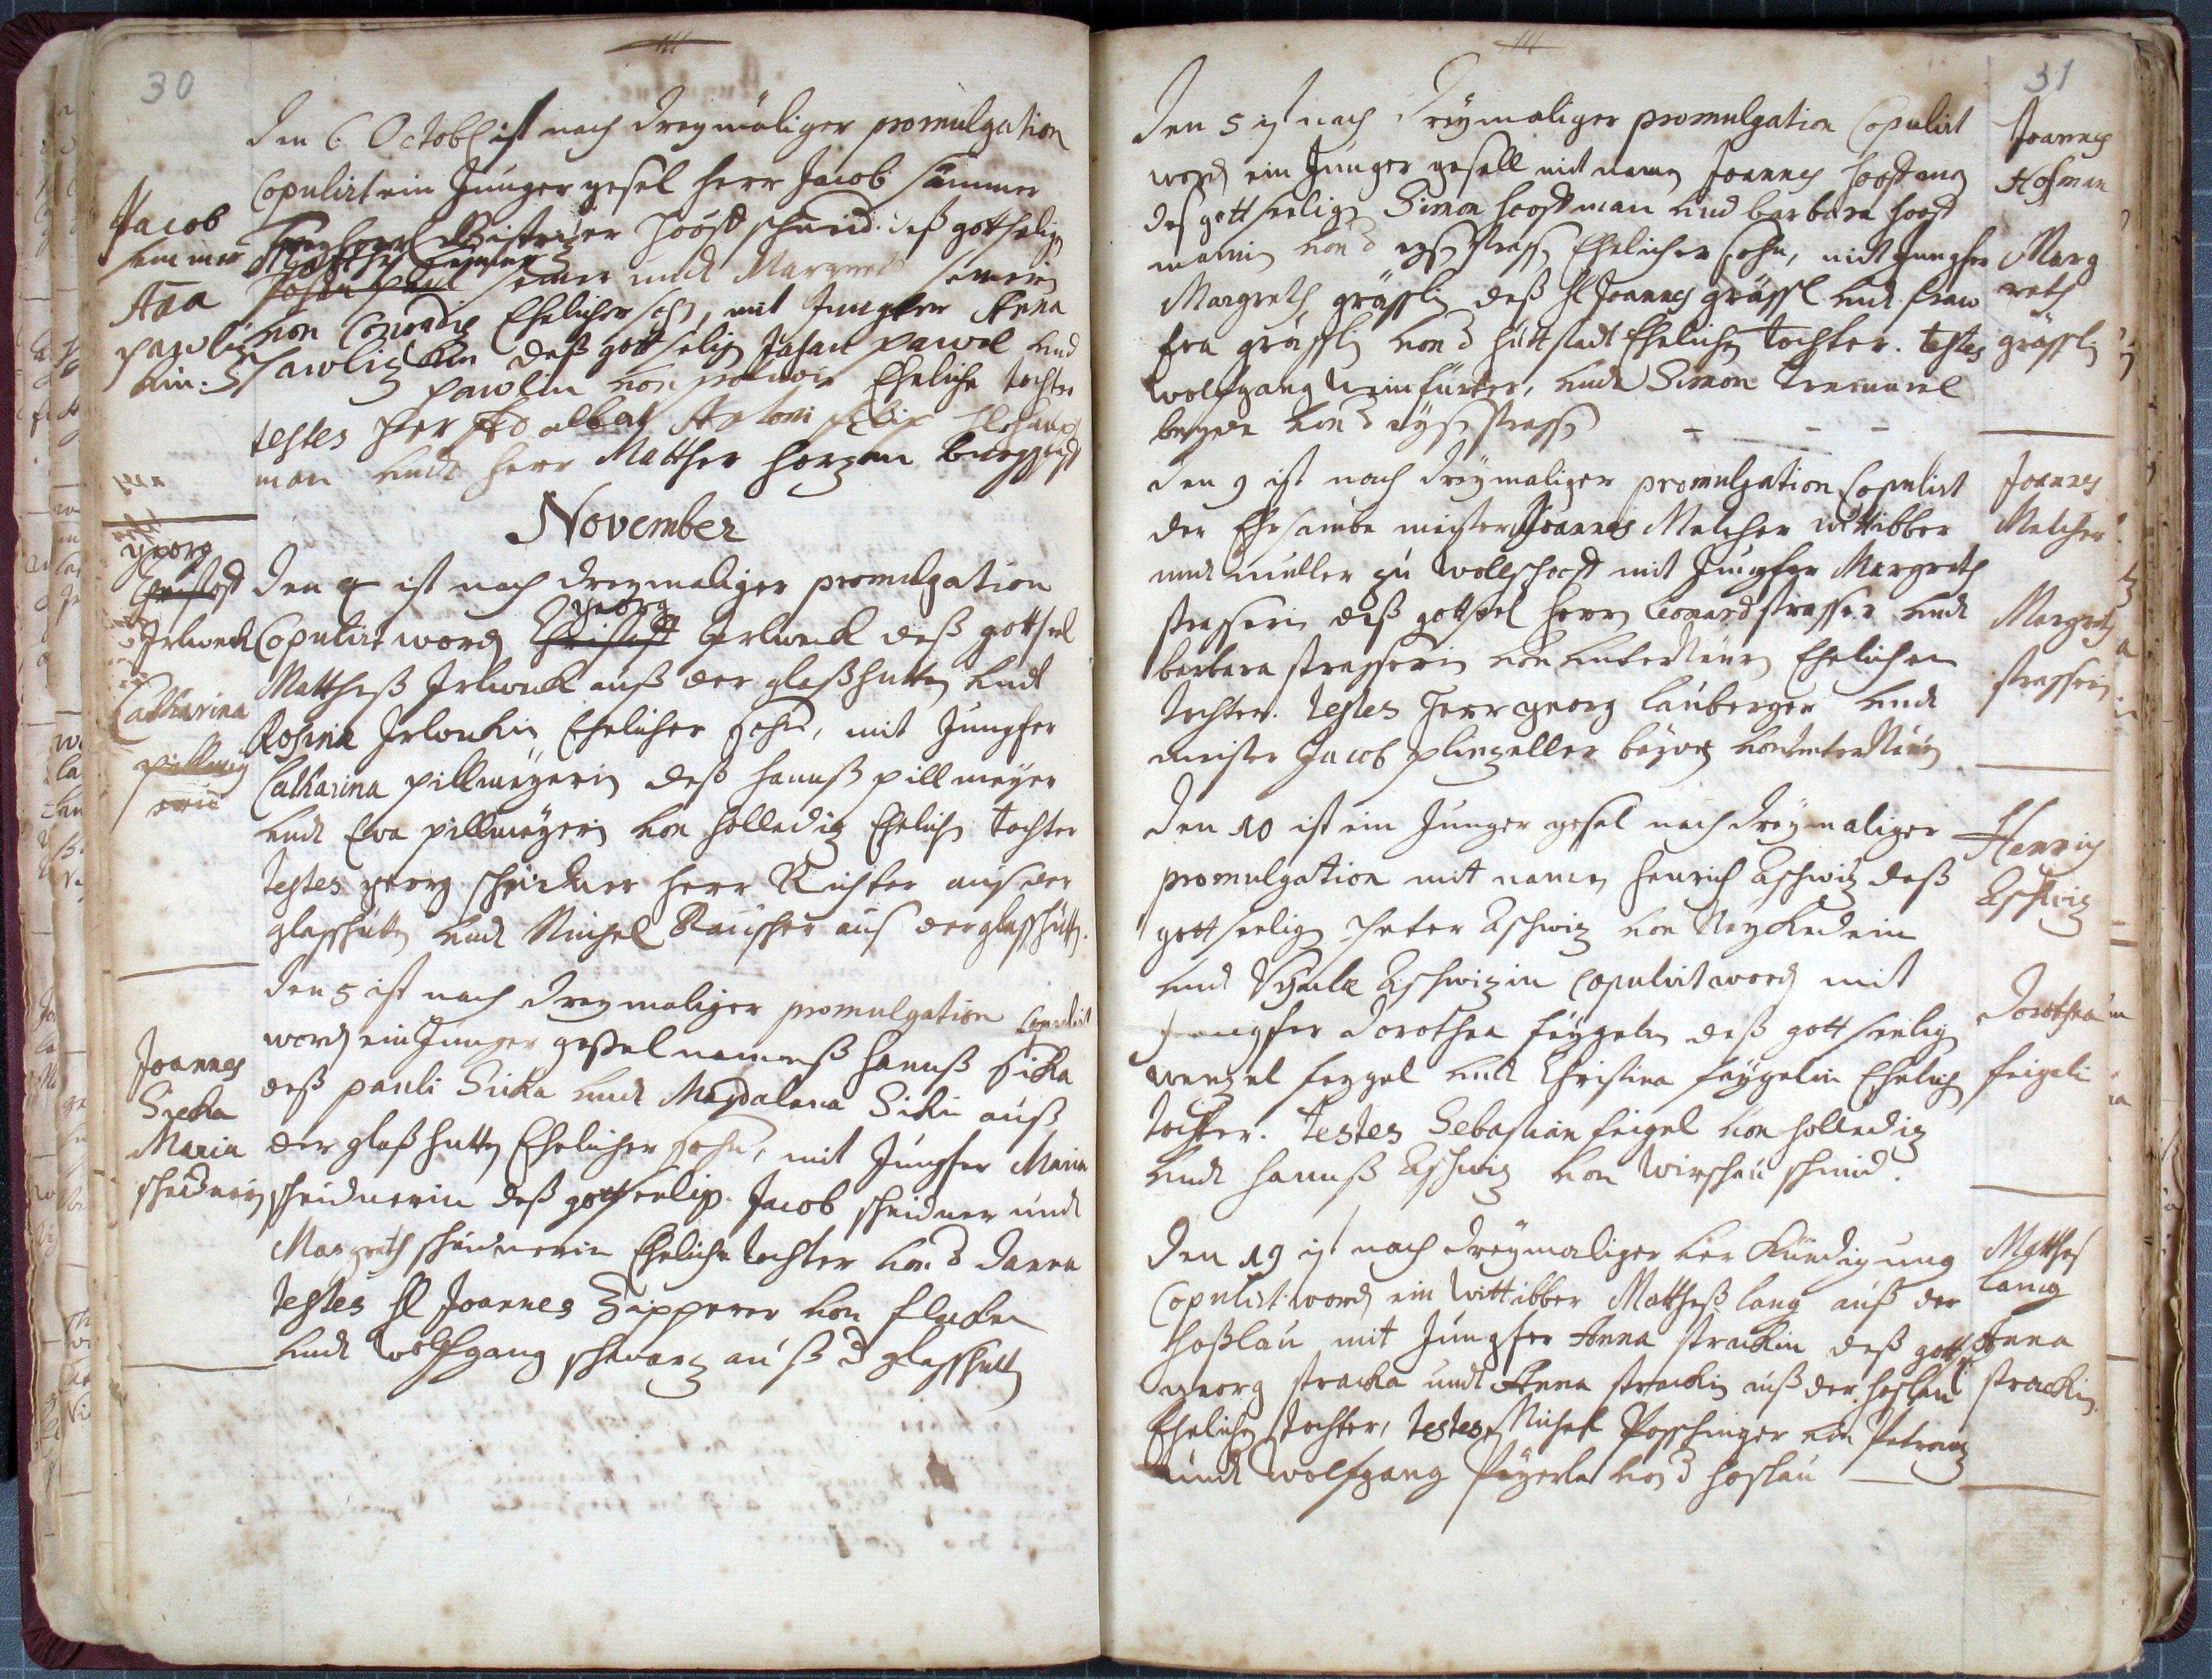 30
Den 6 Octobr ist nach dreymäliger promulgation
Copulirt ein Junger gesel herr Jacob Sammer
Bistrizer Hoost schmid deß gotseligen
semer undt Margreth semerin
von Conradis Ehelicher sohn, mit Jungfer Anna
Pawlizkin deß gottselig Johan pawel und
pawlin von Ehelicher tochter
testes Her Adalbert Antoni
man undt Herr Matthes
Jacob
semmer
Anna
pawliz
kin.
November
Den 4 ist nach dreymaliger promulgation
georg
Copulirt word Christoff Irlweck deß gottsel
Mattheß Irlweck auß der glaßhutten undt
Rosina Irlwekin Ehelicher sohn, mit Jungfer
Catharina pillmeyerin deß hannß pillmeyer
undt Eva pillmeyerin von Holledig Ehelich tochter
testes georg schridner herr Richter auß der
glasshutten undt Michel Rauscher auß der glasshütt.
georg
Christoff
Irlweck
Catharina
pillmey
erin
Den 5 ist nach dreymaliger promulgation Copulirt
word ein Junger gesel namenß hannß Sicka
deß pauli Sicka undt Magdalena Sickin auß
der glaßhutten Ehelicher sohn, mit Jungfer Maria
schridnerin deß gottseelig. Jacob schridner undt
Margreth schridnerin Eheliche tochter von d Danna
testes H Joannes Zipperer von flecken
undt Wolffgang schwarz auß d glasshutten
Joannes
Sicka
Maria
schridnerin
31
Den 5 ist nach dreymaliger promulgation Copulirt
word ein Junger gesell mit namen Joannes hoffman
deß gottseelig Simon hoffman und barbara hoff
manin von d eysenstrass Ehelicher sohn, mit Jungfer
Margreth grässlin deß H Joannes grässl undt fraw
Eva grässlin von d hüttstadt Ehelicher tochter. testes
Wolffgang Weinfurter, undt Simon
beyde von d eysenstrass
Joannes
Hofman
Marg
reth
grässlin
Den 9 ist nach dreymaliger promulgation Copulirt
der Ehrsambe meister Joannes Melcher wittibber
undt muller zu Wollschost mit Jungfer Margreth
strasserin deß gottsel herrn Leonard strasser undt
barbara strasserin von Ehelicher
tochter. testes Herr georg lauberger undt
meister Jacob plinzeller beyde von
Joannes
Melcher
Margreth
strasserin
Den 10 ist ein Junger gesel nach dreymaliger
promulgation mit namen Henrich Aschwiz deß
gottseelig Peter Aschwiz von
undt Aschwizin Copulirt word mit
Jungfer Dorothea feygelin deß gottseelig
wenzel feygel undt Christina feygelin Ehelich
tochter. testes Sebastian feigel von Holledig
undt hannß Aschwiz von schmid.
Henrich
Aschwiz
Dorothea
feigeli
Den 19 ist nach dreymaliger verkündigung
Copulirt word ein wittibber Mattheß lang auß der
hoßlau mit Jungfer Anna strackin deß gotts
georg stracka undt Anna strackin auß der hoslau
Ehelicher tochter, testes Michel Poschinger von
undt Wolfgang von d hoslau
Matthes
lang
Anna
strackin